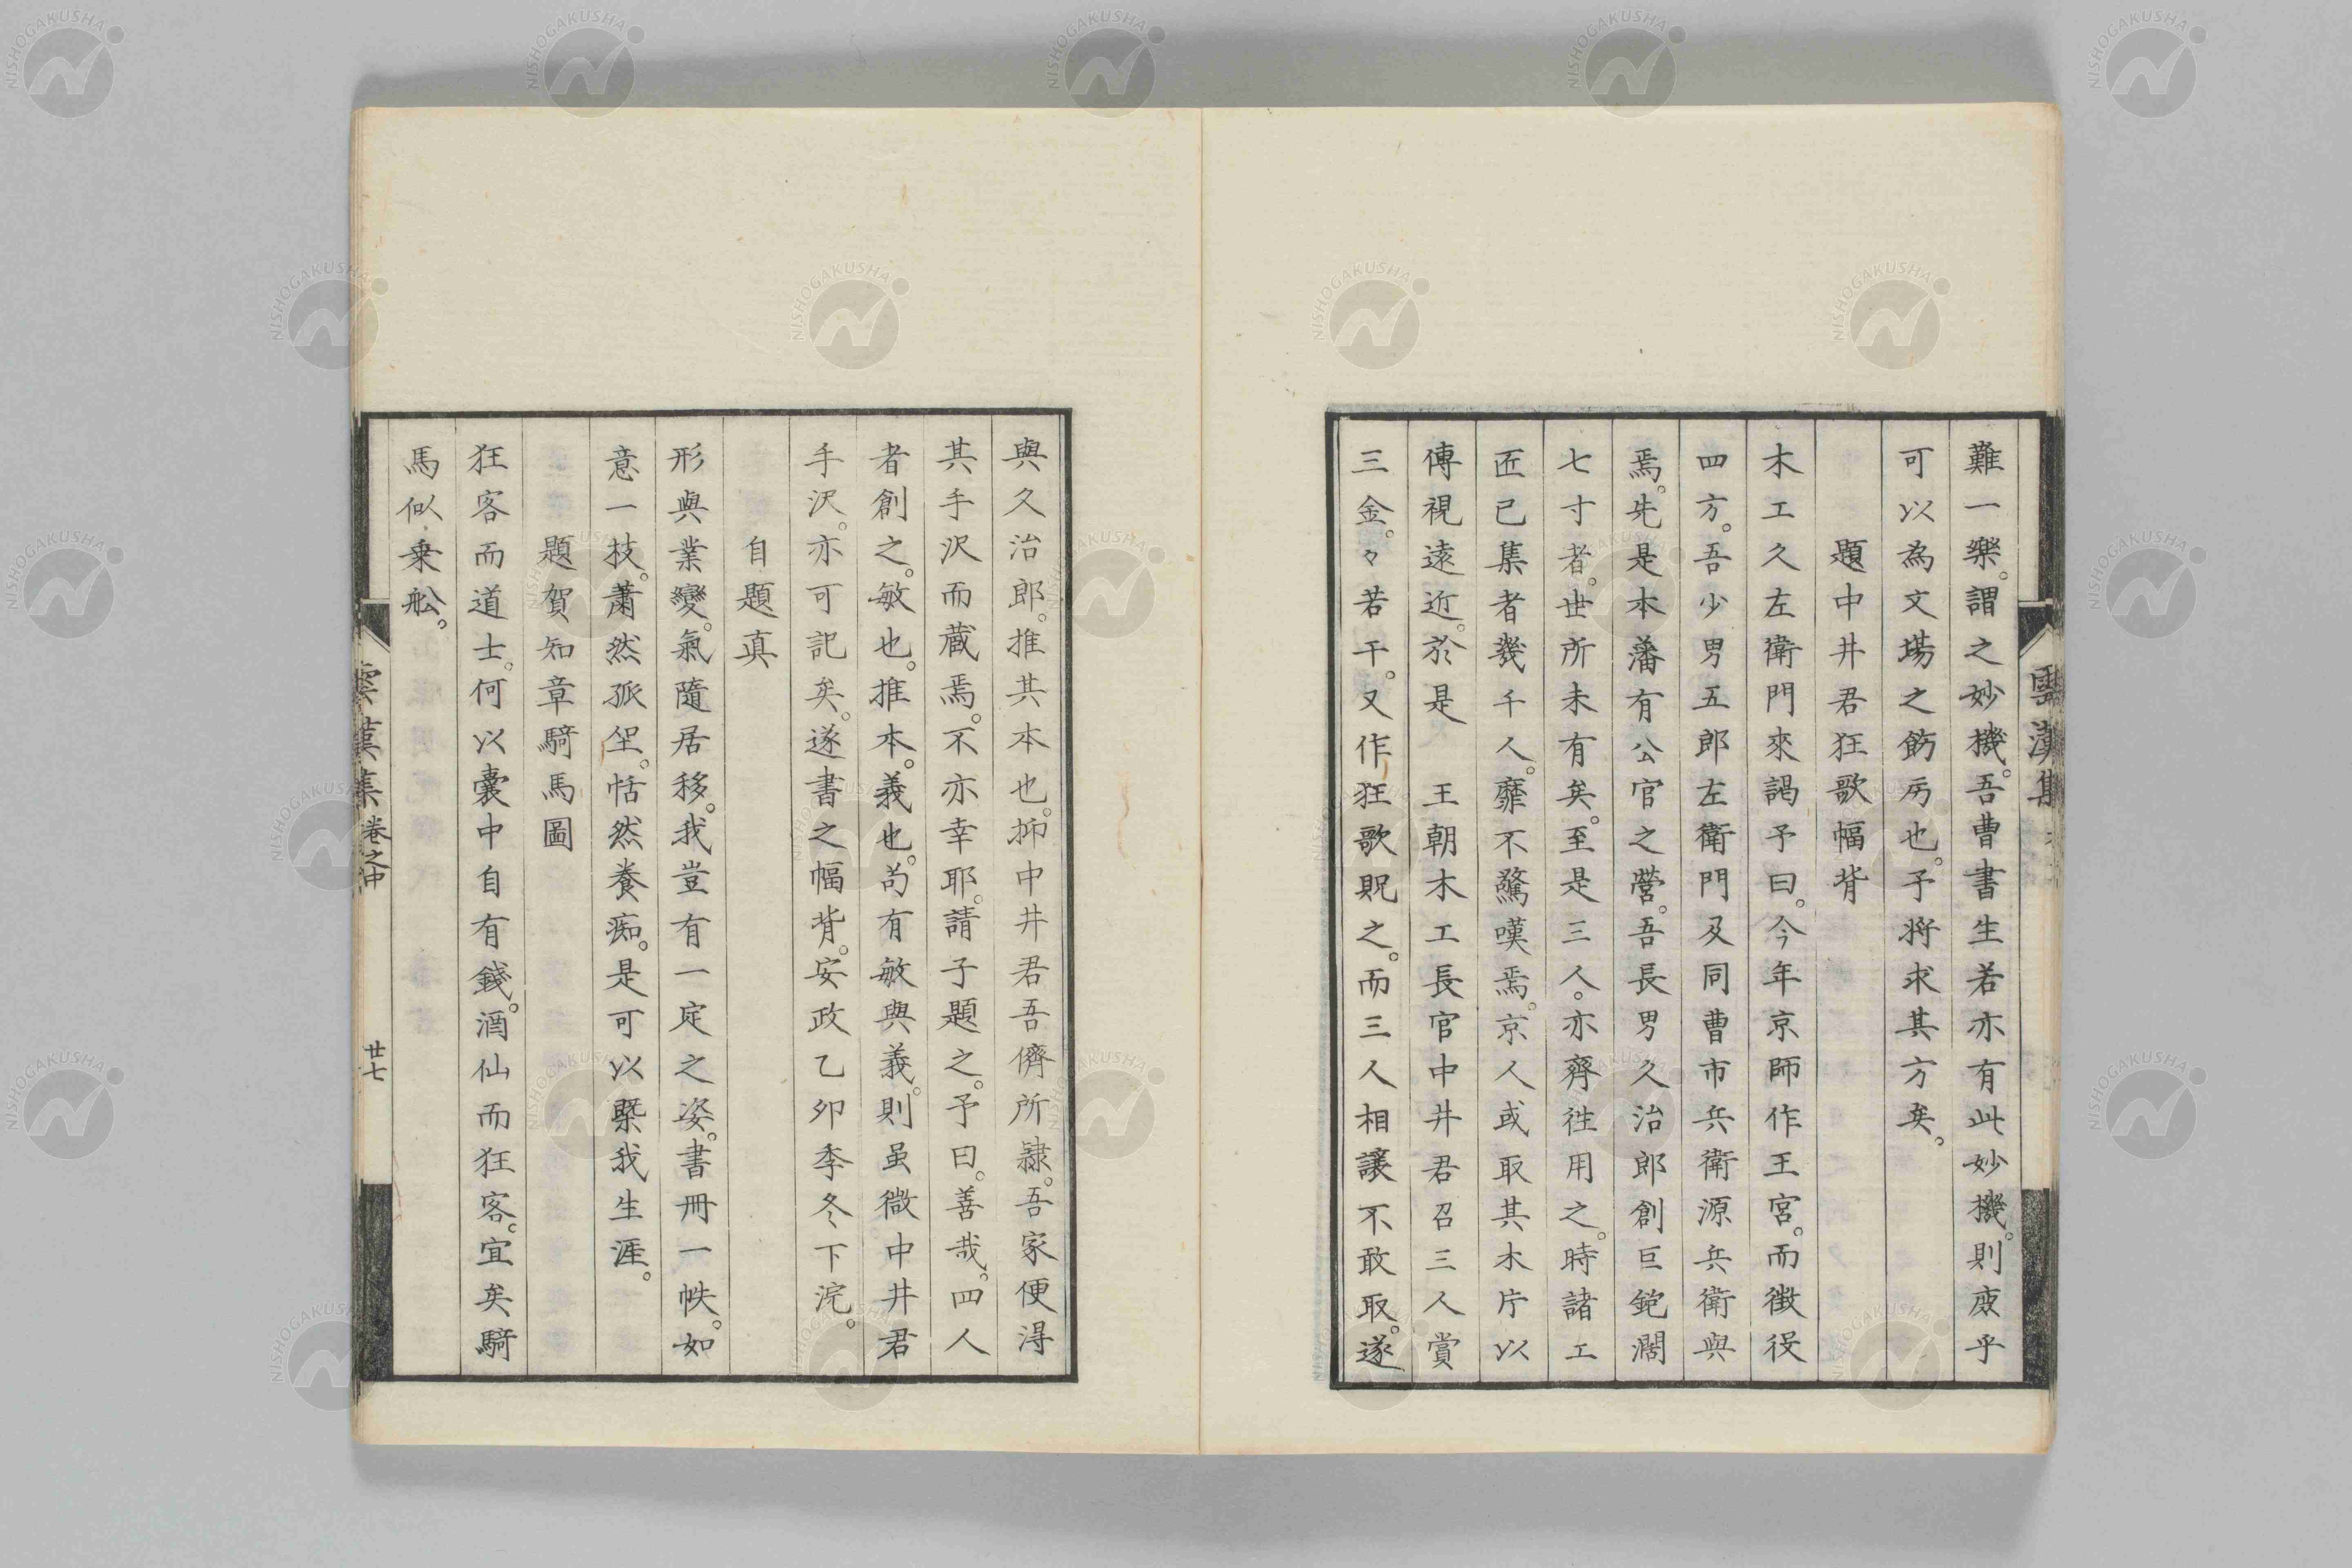 難一樂。謂之妙機。吾曹書生若亦有此妙機。則庶乎
可以為文場之飭房也。予将求其方矣。
題中井君狂歌幅背
木工久左衛門來謁予曰。今年京師作王宮。而徴役
四方。吾少男五郎左衛門及同曹市兵衛源兵衛與
焉。先是本藩有公官之營。吾長男久治郎創巨鉋濶
七寸者。世所未有矣。至是三人。亦齊往用之。時諸工
匠已集者幾千人。靡不驚嘆焉。京人或取其木片以
傳視遠近。於是 王朝木工長官中井君召三人賞
三金。々若干。又作狂歌貺之。而三人相讓不敢取。遂
與久治郎。推其本也。抑中井君吾儕所隷。吾家便淂
其手沢而蔵焉。不亦幸耶。請子題之。予曰。善哉。四人
者創之。敏也。推本。義也。苟有敏與義。則虽微中井君
手沢。亦可記矣。遂書之幅背。安政乙卯季冬下浣。
自題真
形與業變。氣隨居移。我豈有一定之姿。書冊一帙。如
意一技。蕭然孤坐。恬然養痴。是可以槩我生涯。
題賀知章騎馬圖
狂客而道士。何以囊中自有錢。酒仙而狂客。宜矣騎
馬似乗舩。
雲漢集 卷之中 廿七
雲漢集